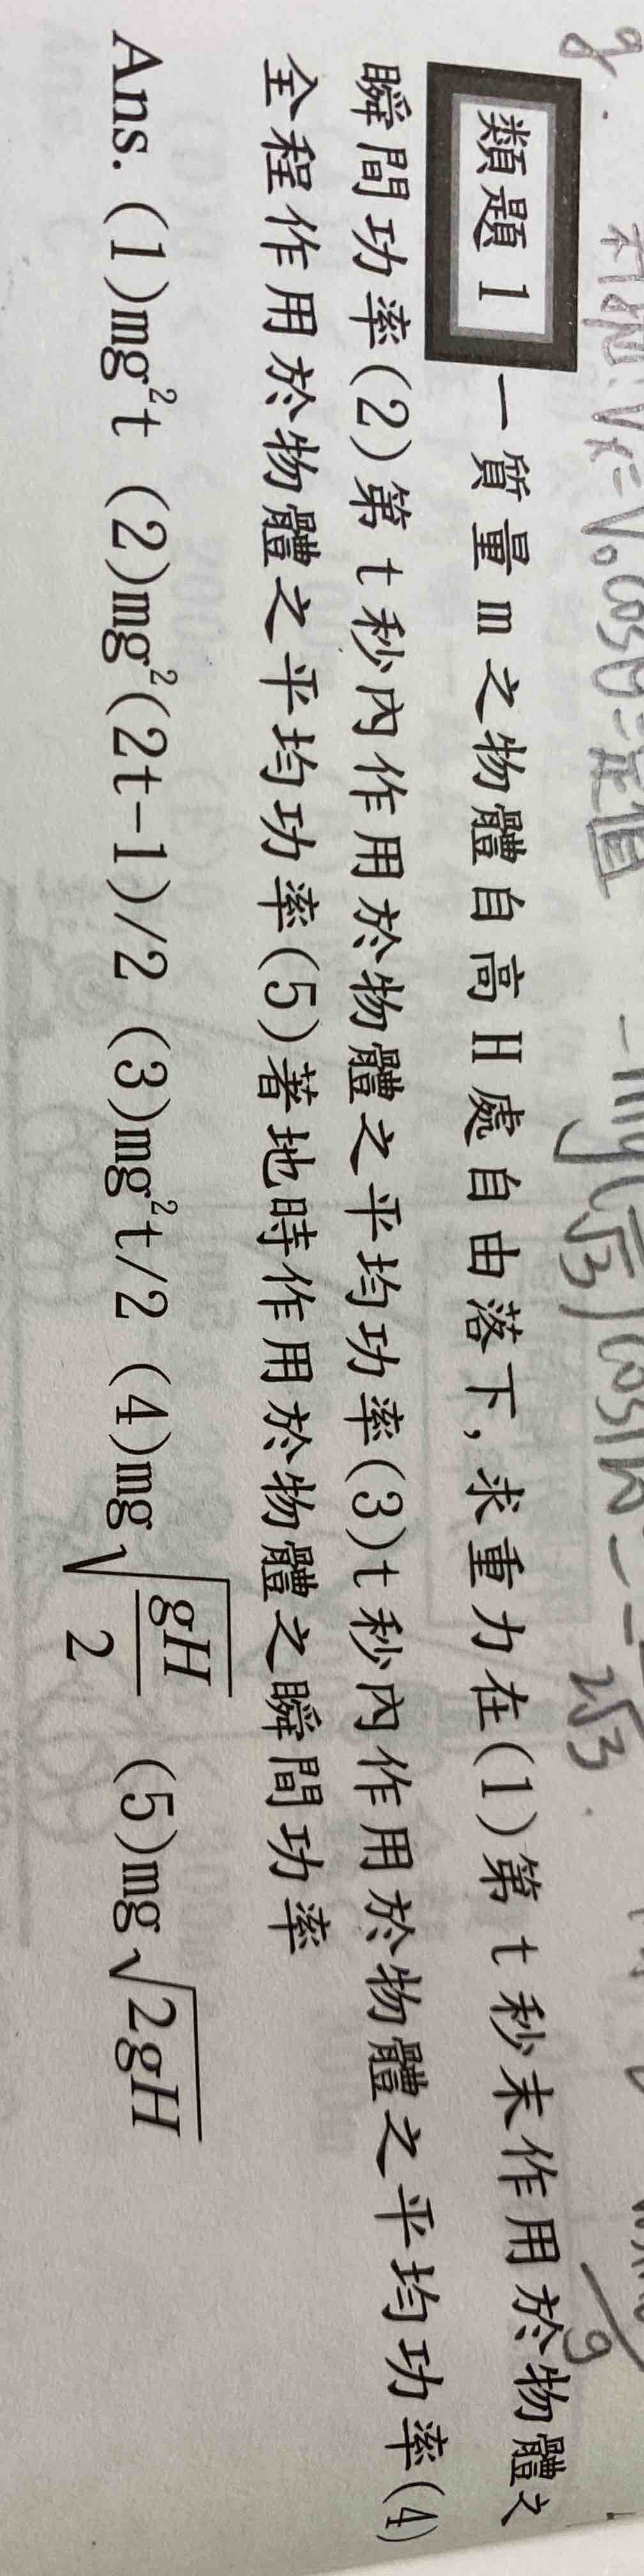 科in: Vx=V₀cosθ=定值
類題 1 一質量 m 之物體自高 H 處自由落下,求重力在(1)第 t 秒末作用於物體之
瞬間功率(2)第 t 秒內作用於物體之平均功率(3)t 秒內作用於物體之平均功率(4)
全程作用於物體之平均功率(5)著地時作用於物體之瞬間功率
Ans. (1)mg²t (2)mg²(2t-1)/2 (3)mg²t/2 (4)mg√(gH/2) (5)mg√(2gH)